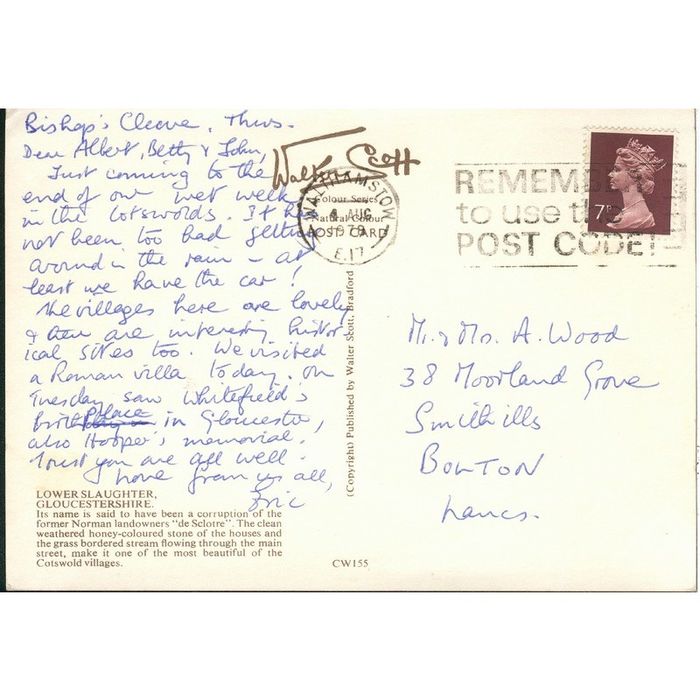 Bishop's Cleeve, Thurs.
Dear Albert, Betty & John,
Just coming to the
end of our wet week
in the Cotswolds. It has
not been too bad getting
around in the rain – at
least we have the car!
The villages here are lovely
& there are interesting histor
ical sites too. We visited
a Roman villa today. On
Tuesday saw Whitefield's
birthplace in Gloucester,
also Hooper's memorial.
Trust you are all well.
Love from us all,
Eric
LOWER SLAUGHTER,
GLOUCESTERSHIRE.
Its name is said to have been a corruption of the
former Norman landowners "de Sclotre". The clean
weathered honey-coloured stone of the houses and
the grass bordered stream flowing through the main
street, make it one of the most beautiful of the
Cotswold villages.
CW155
Walter Scott
Colour Series
Natural Colour
POST CARD
WALTHAMSTOW
AUG
1979
E.17
(Copyright) Published by Walter Scott, Bradford
REMEMBER
to use the
POST CODE!
7P
Mr. & Mrs. A. Wood
38 Moorland Grove
Smithills
BOLTON
Lancs.